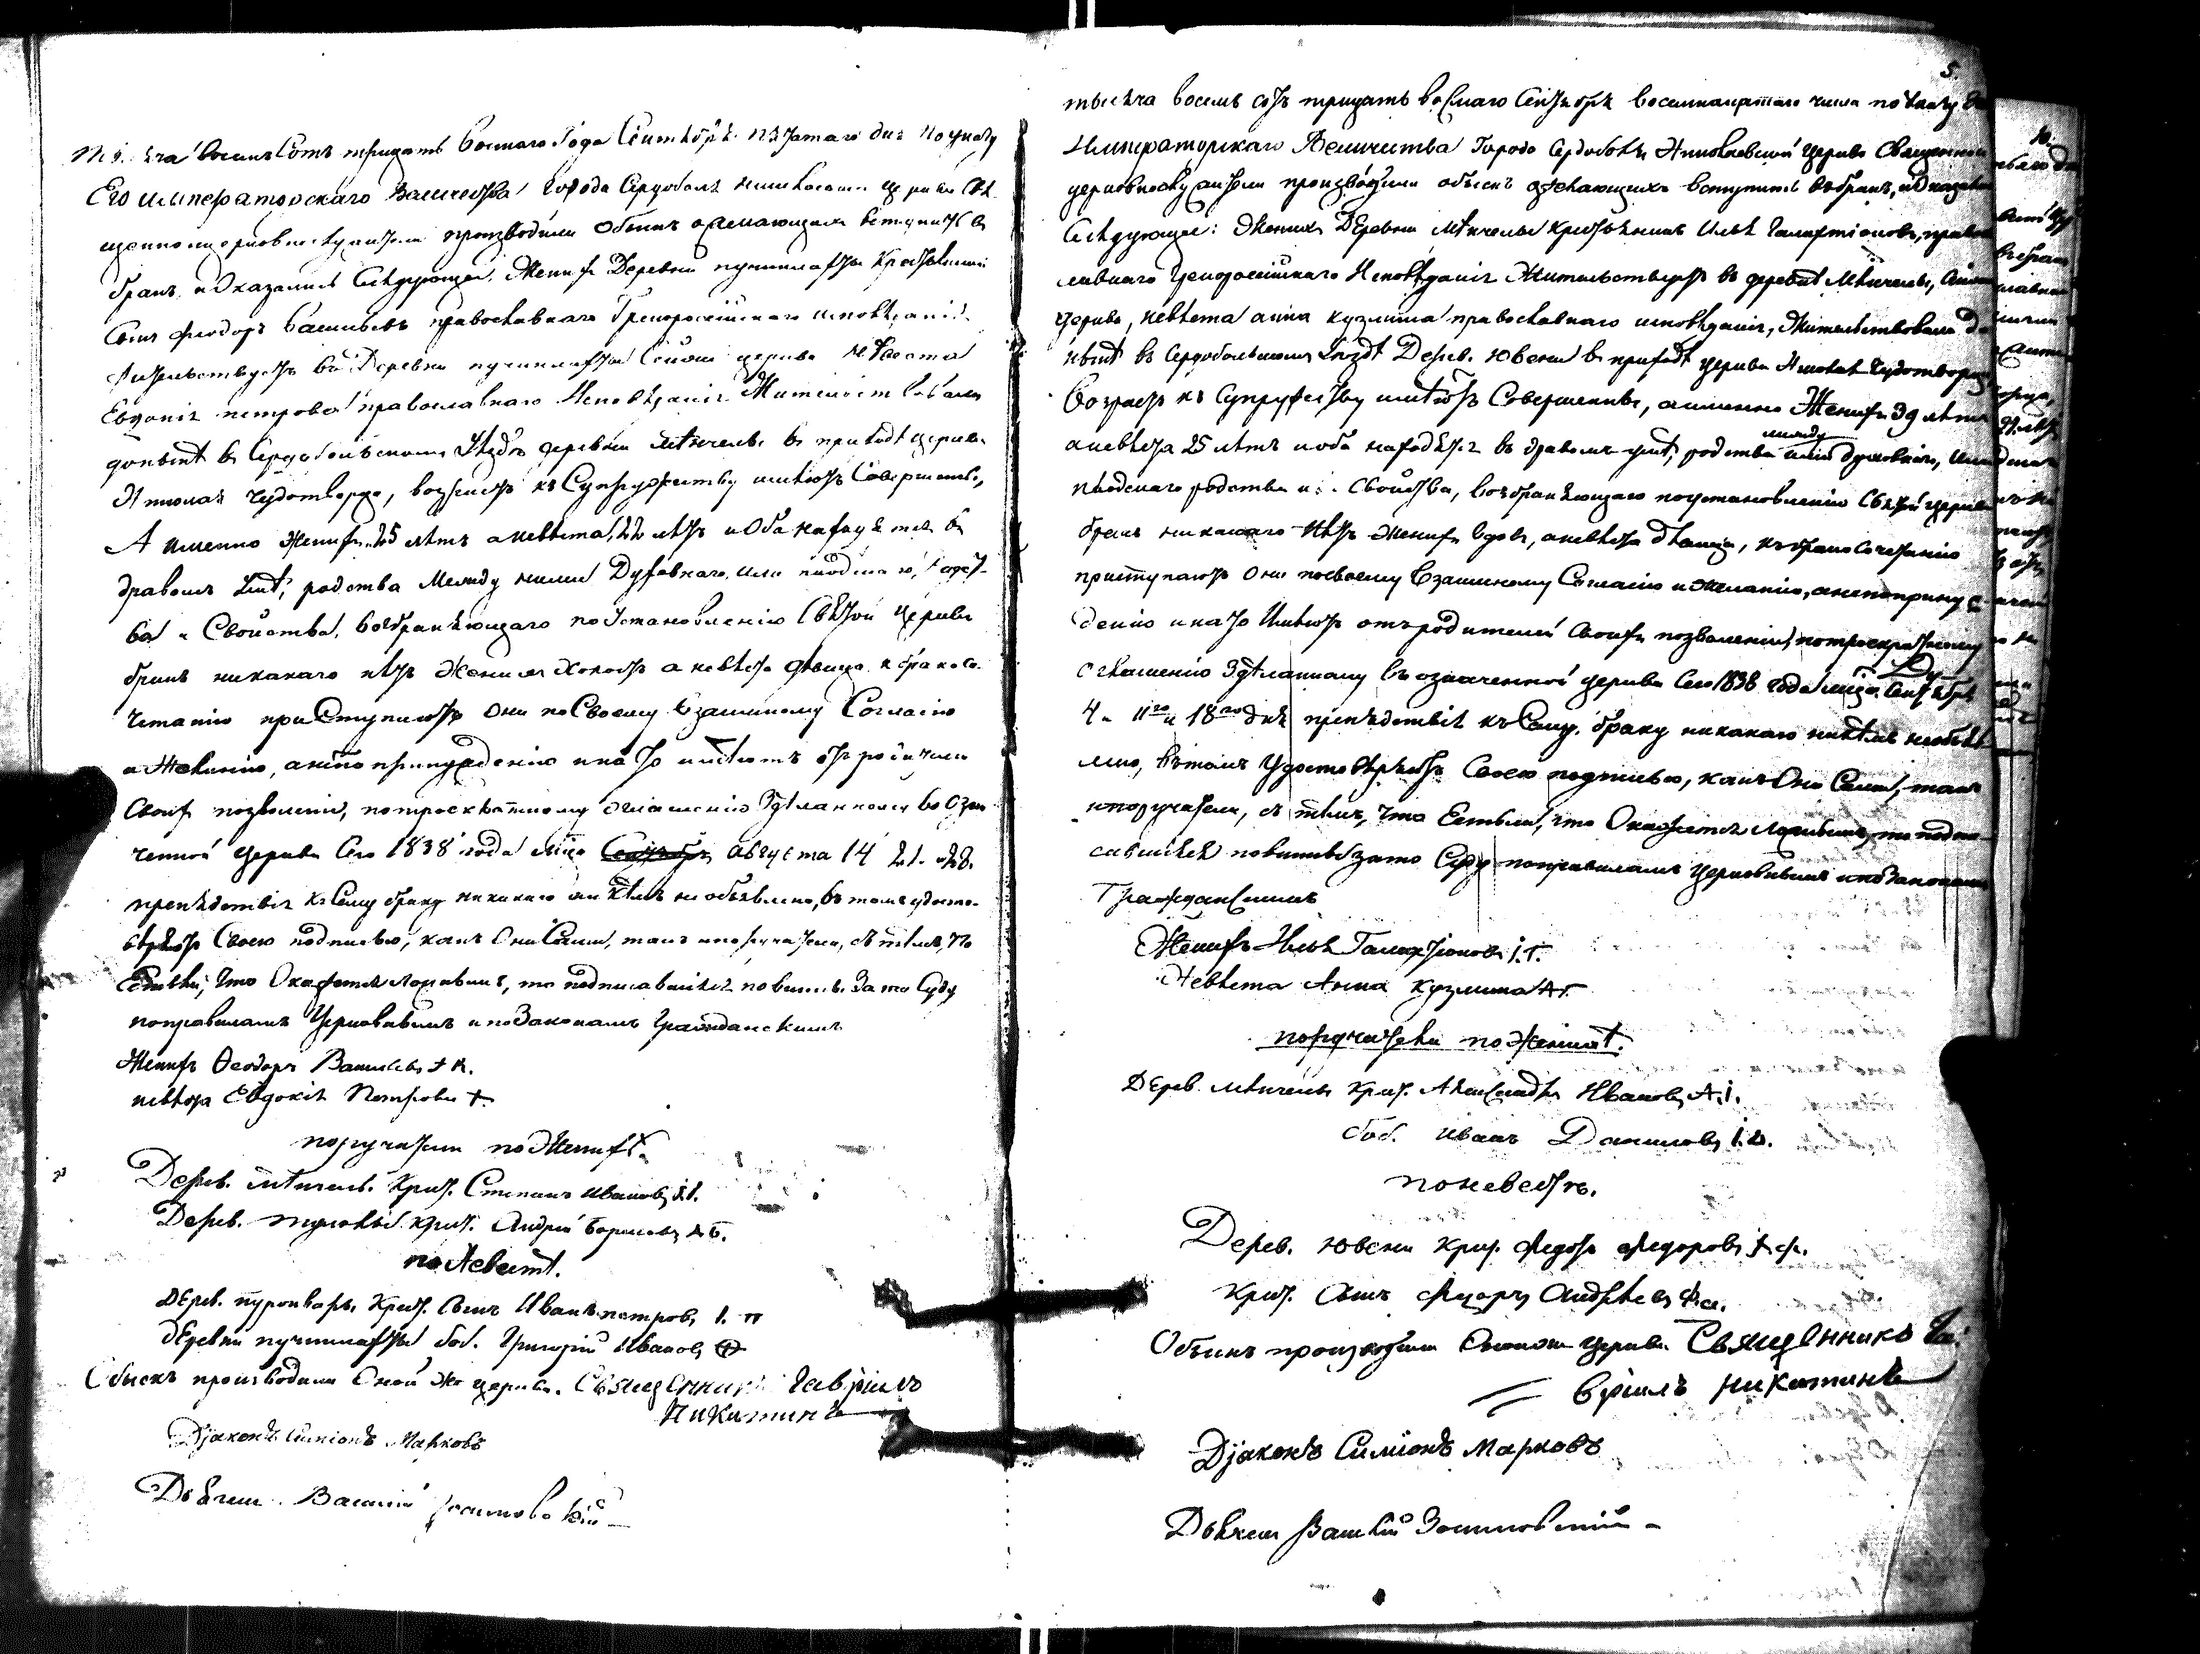 тысяча восемь сотъ тридцать восмаго года Сентября пятаго дня по указу
Его императорскаго величества города Сердоболя николаевской церкви свя
щенноцерковнослужители производили обыскъ о желающихъ вступить въ
бракъ, и оказалось следующее: Женихъ Деревни крестьянской
сынъ феодоръ васильевъ православнаго Грекороссійскаго исповеданія
жительствуетъ въ Деревни сей церкви невѣста
Евдокія петрова православнаго исповѣданія Жительствовала
донынѣ въ Сердобольскомъ уѣздѣ деревни въ приходѣ церкви
Николая чудотворца, возрастъ къ супружеству имѣютъ совершенный,
А именно женихъ 25 лѣтъ а невѣста 22 лѣтъ и оба находятся въ
здравомъ умѣ, родства между ними Духовнаго, или плодскаго родст-
ва и свойства, возбраняющаго по установленію святой церкви
бракъ никакаго нѣтъ женихъ холостъ а невѣста дѣвица, к бракосо-
читанію приступаютъ они по своему взаимному согласію
и желанію, а не по принужденію и на то имѣютъ отъ родителей
своихъ позволеніе, по троекратному оглашенію зделанному во озна
ченной церкви сего 1838 года мца августа 14 21. и 28.
препядствія къ сему браку никакаго ни кѣмъ не объявлено, въ томъ удосто-
вѣряютъ своею подписью, какъ они сами, такъ и поручатели, съ тѣмъ, что
естьли, что окажется ложнымъ, то подписавшіяся повинны за то суду
по правиламъ церковнымъ и по законамъ гражданскимъ
Женихъ Феодоръ Васильевъ
невѣста Евдокія Петрова +
поручатели по женихѣ
Дерев. крест. Степанъ ивановъ
Дерев. крест. Андрей борисовъ
по невестѣ.
Дерев. крест. сынъ иванъ петровъ І. П
деревни боб. Григорій ивановъ
Обыскъ производили оной же церкви. Священникъ Гавріилъ
Никитинъ
Дjаконъ Симіонъ Марковъ
Дьячекъ Василій
5.
тысяча восемь сотъ тридцать восмаго Сентября восемнацатаго числа по указу Его
Императорскаго Величества города Сердоболя Николаевской церкви священно
церковнослужители производили обыскъ о желающихъ вступить въ бракъ, и оказалось
следующее: Женихъ Деревни крестьянинъ Илья Галактіоновъ, право
славнаго Грекороссійскаго исповѣданія жительствуетъ въ деревнѣ
церкви, невѣста анна кузмина православнаго исповѣданія, жительствовала до
нынѣ въ Сердобольскомъ уѣздѣ Дерев. въ приходѣ церкви Николая Чудотворца
возрастъ къ супружеству имѣютъ совершенный, а именно Женихъ 39 лѣтъ
а невѣста 25 лѣтъ и оба находятся въ здравомъ умѣ, родства между ними духовнаго, или
плодскаго родства и свойства, возбраняющаго по установленію святой церкви
бракъ никакаго нѣтъ женихъ вдовъ, а невѣста дѣвица, къ бракосочетанію
приступаютъ они по своему взаимному согласію и желанію, а не по принуж
денію и на то имѣютъ отъ родителей своихъ позволеніе, по троекратному
оглашенію зделанному въ означенной церкви сего 1838 года мца Сентября
4. 11го и 18го дня препядствія къ сему браку никакаго никѣмъ необъяв
лено, въ томъ удостовѣряютъ своею подписью, какъ они сами, такъ
и поручатели, съ тѣмъ, что естьли, что окажется ложнымъ, то подпи
савшіяся повинны за то суду по правиламъ церковнымъ и по законамъ
Гражданскимъ
Женихъ Илья Галактіоновъ І. Г.
Невѣста Анна кузмина
поручатели по Женихѣ.
Дерев. крест. Александръ Ивановъ А. І.
боб. иванъ Даниловъ І. Д.
по невестѣ.
Дерев. крест. федоръ федоровъ ф. ф.
крест. сынъ федоръ андреевъ ф. а.
Обыскъ производили оной церкви Священникъ Га:
= вріилъ Никитинъ
Дjаконъ Симіонъ Марковъ
Дьячекъ Василій